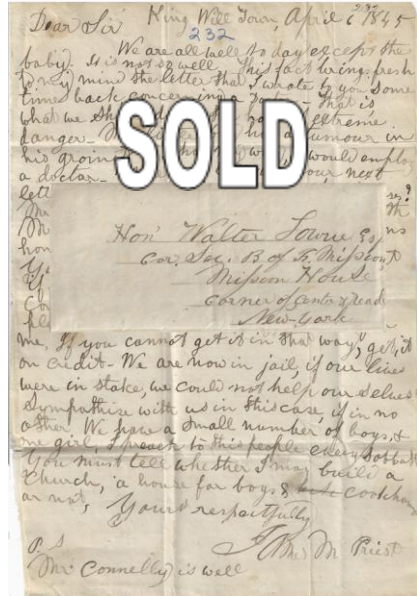 Dear Sir King Will Town, April 6 1845
232
We are all well to day except the
baby. It is not so well. This fact brings fresh
to my mind the letter that I wrote to you some
time back concerning a
what we sh extreme
danger. humour in
his groin would employ
a doctor. our next
SOLD
Hon Walter Lowrie Esq
Cor. Sec. B of F. Missions
Mission House
Corner of Centre & Reade
New-York
me. If you cannot get it in that way, get it
on credit. We are now in jail, if our lives
were in stake, we could not help our selves
Sympathise with us in this case, if in no
other. We have a small number of boys, &
one girl. I preach to this people every Sabbath
You must tell whether I may build a
Church, a house for boys & cookhouse
or not, Yours respectfully
James M Priest
P. S
Mr Connelly is well